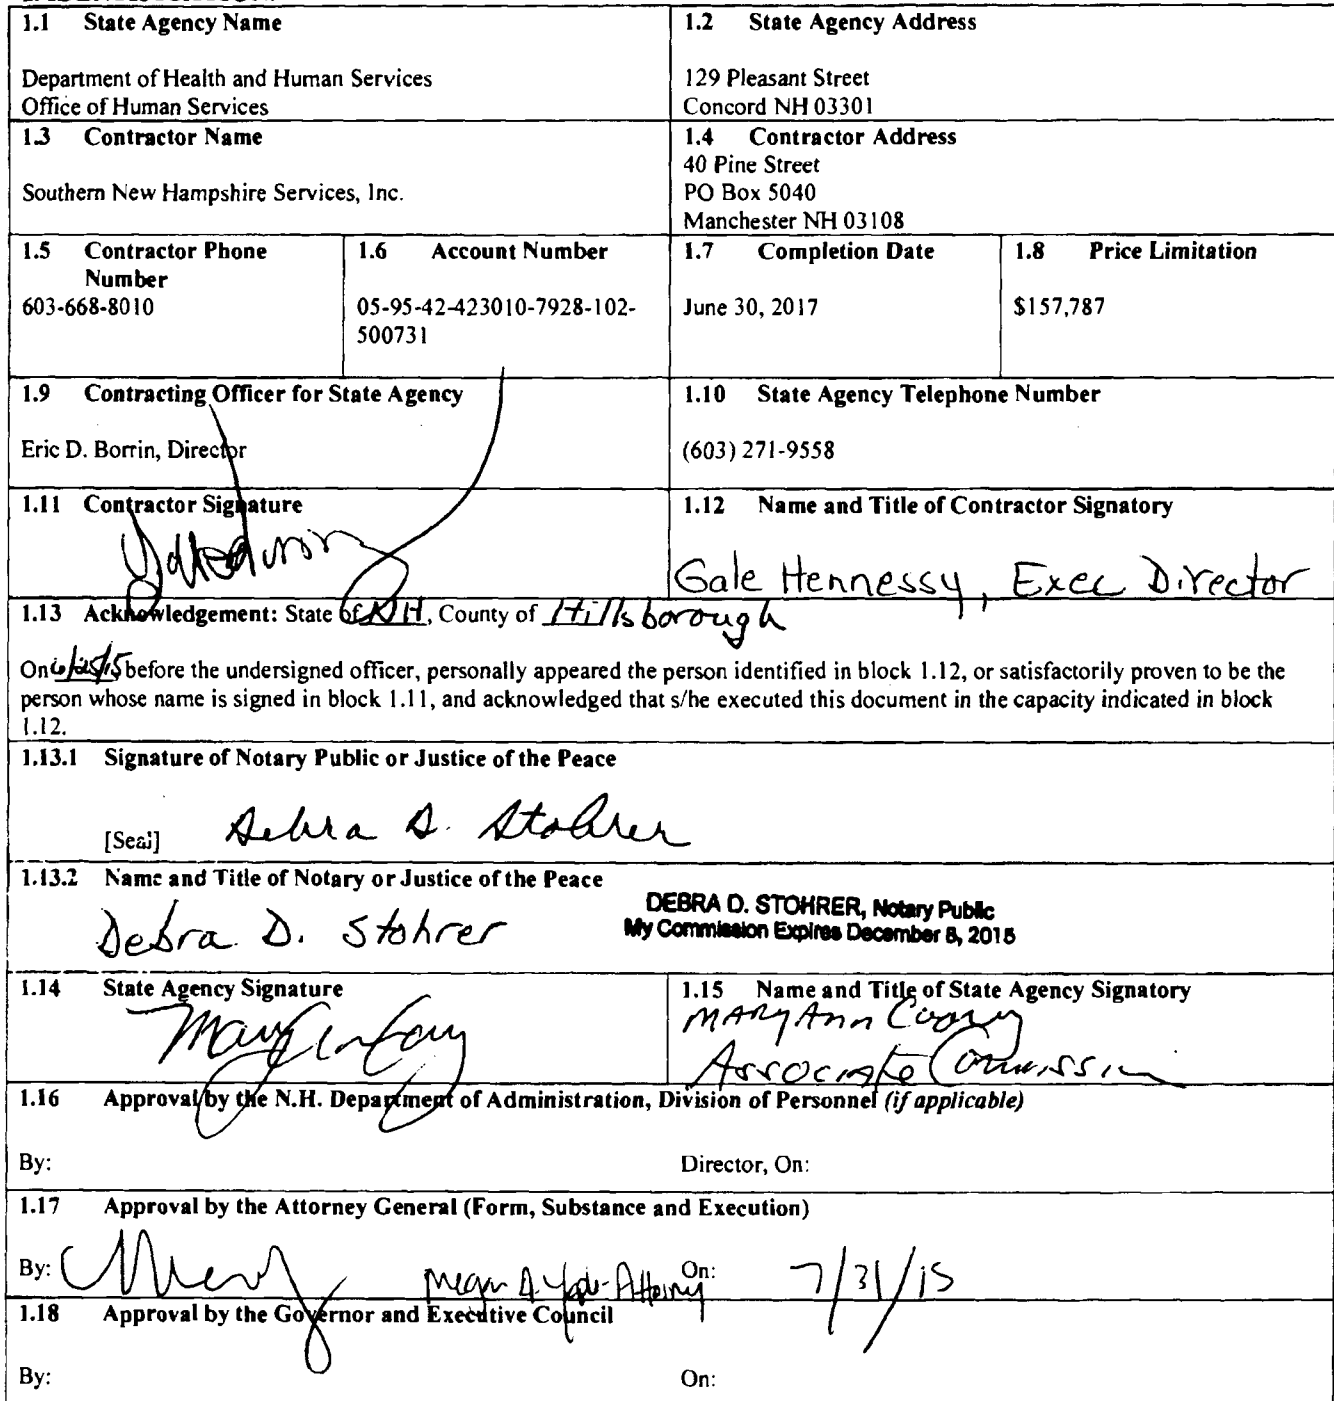 1.1 State Agency Name
Department of Health and Human Services
Office of Human Services
1.2 State Agency Address
129 Pleasant Street
Concord NH 03301
1.3 Contractor Name
Southern New Hampshire Services, Inc.
1.4 Contractor Address
40 Pine Street
PO Box 5040
Manchester NH 03108
1.5 Contractor Phone
Number
603-668-8010
1.6 Account Number
05-95-42-423010-7928-102-
500731
1.7 Completion Date
June 30, 2017
1.8 Price Limitation
$157,787
1.9 Contracting Officer for State Agency
Eric D. Borrin, Director
1.10 State Agency Telephone Number
(603) 271-9558
1.11 Contractor Signature
1.12 Name and Title of Contractor Signatory
Gale Hennessy, Exec Director
1.13 Acknowledgement: State of NH, County of Hillsborough
On 6/25/15 before the undersigned officer, personally appeared the person identified in block 1.12, or satisfactorily proven to be the
person whose name is signed in block 1.11, and acknowledged that s/he executed this document in the capacity indicated in block
1.12.
1.13.1 Signature of Notary Public or Justice of the Peace
[Seal] Debra D. Stohrer
1.13.2 Name and Title of Notary or Justice of the Peace
Debra D. Stohrer
DEBRA D. STOHRER, Notary Public
My Commission Expires December 8, 2015
1.14 State Agency Signature
1.15 Name and Title of State Agency Signatory
Mary Ann Cooney
Associate Commission
1.16 Approval by the N.H. Department of Administration, Division of Personnel (if applicable)
By: Director, On:
1.17 Approval by the Attorney General (Form, Substance and Execution)
By: Megan A. - Attorney On: 7/31/15
1.18 Approval by the Governor and Executive Council
By: On: